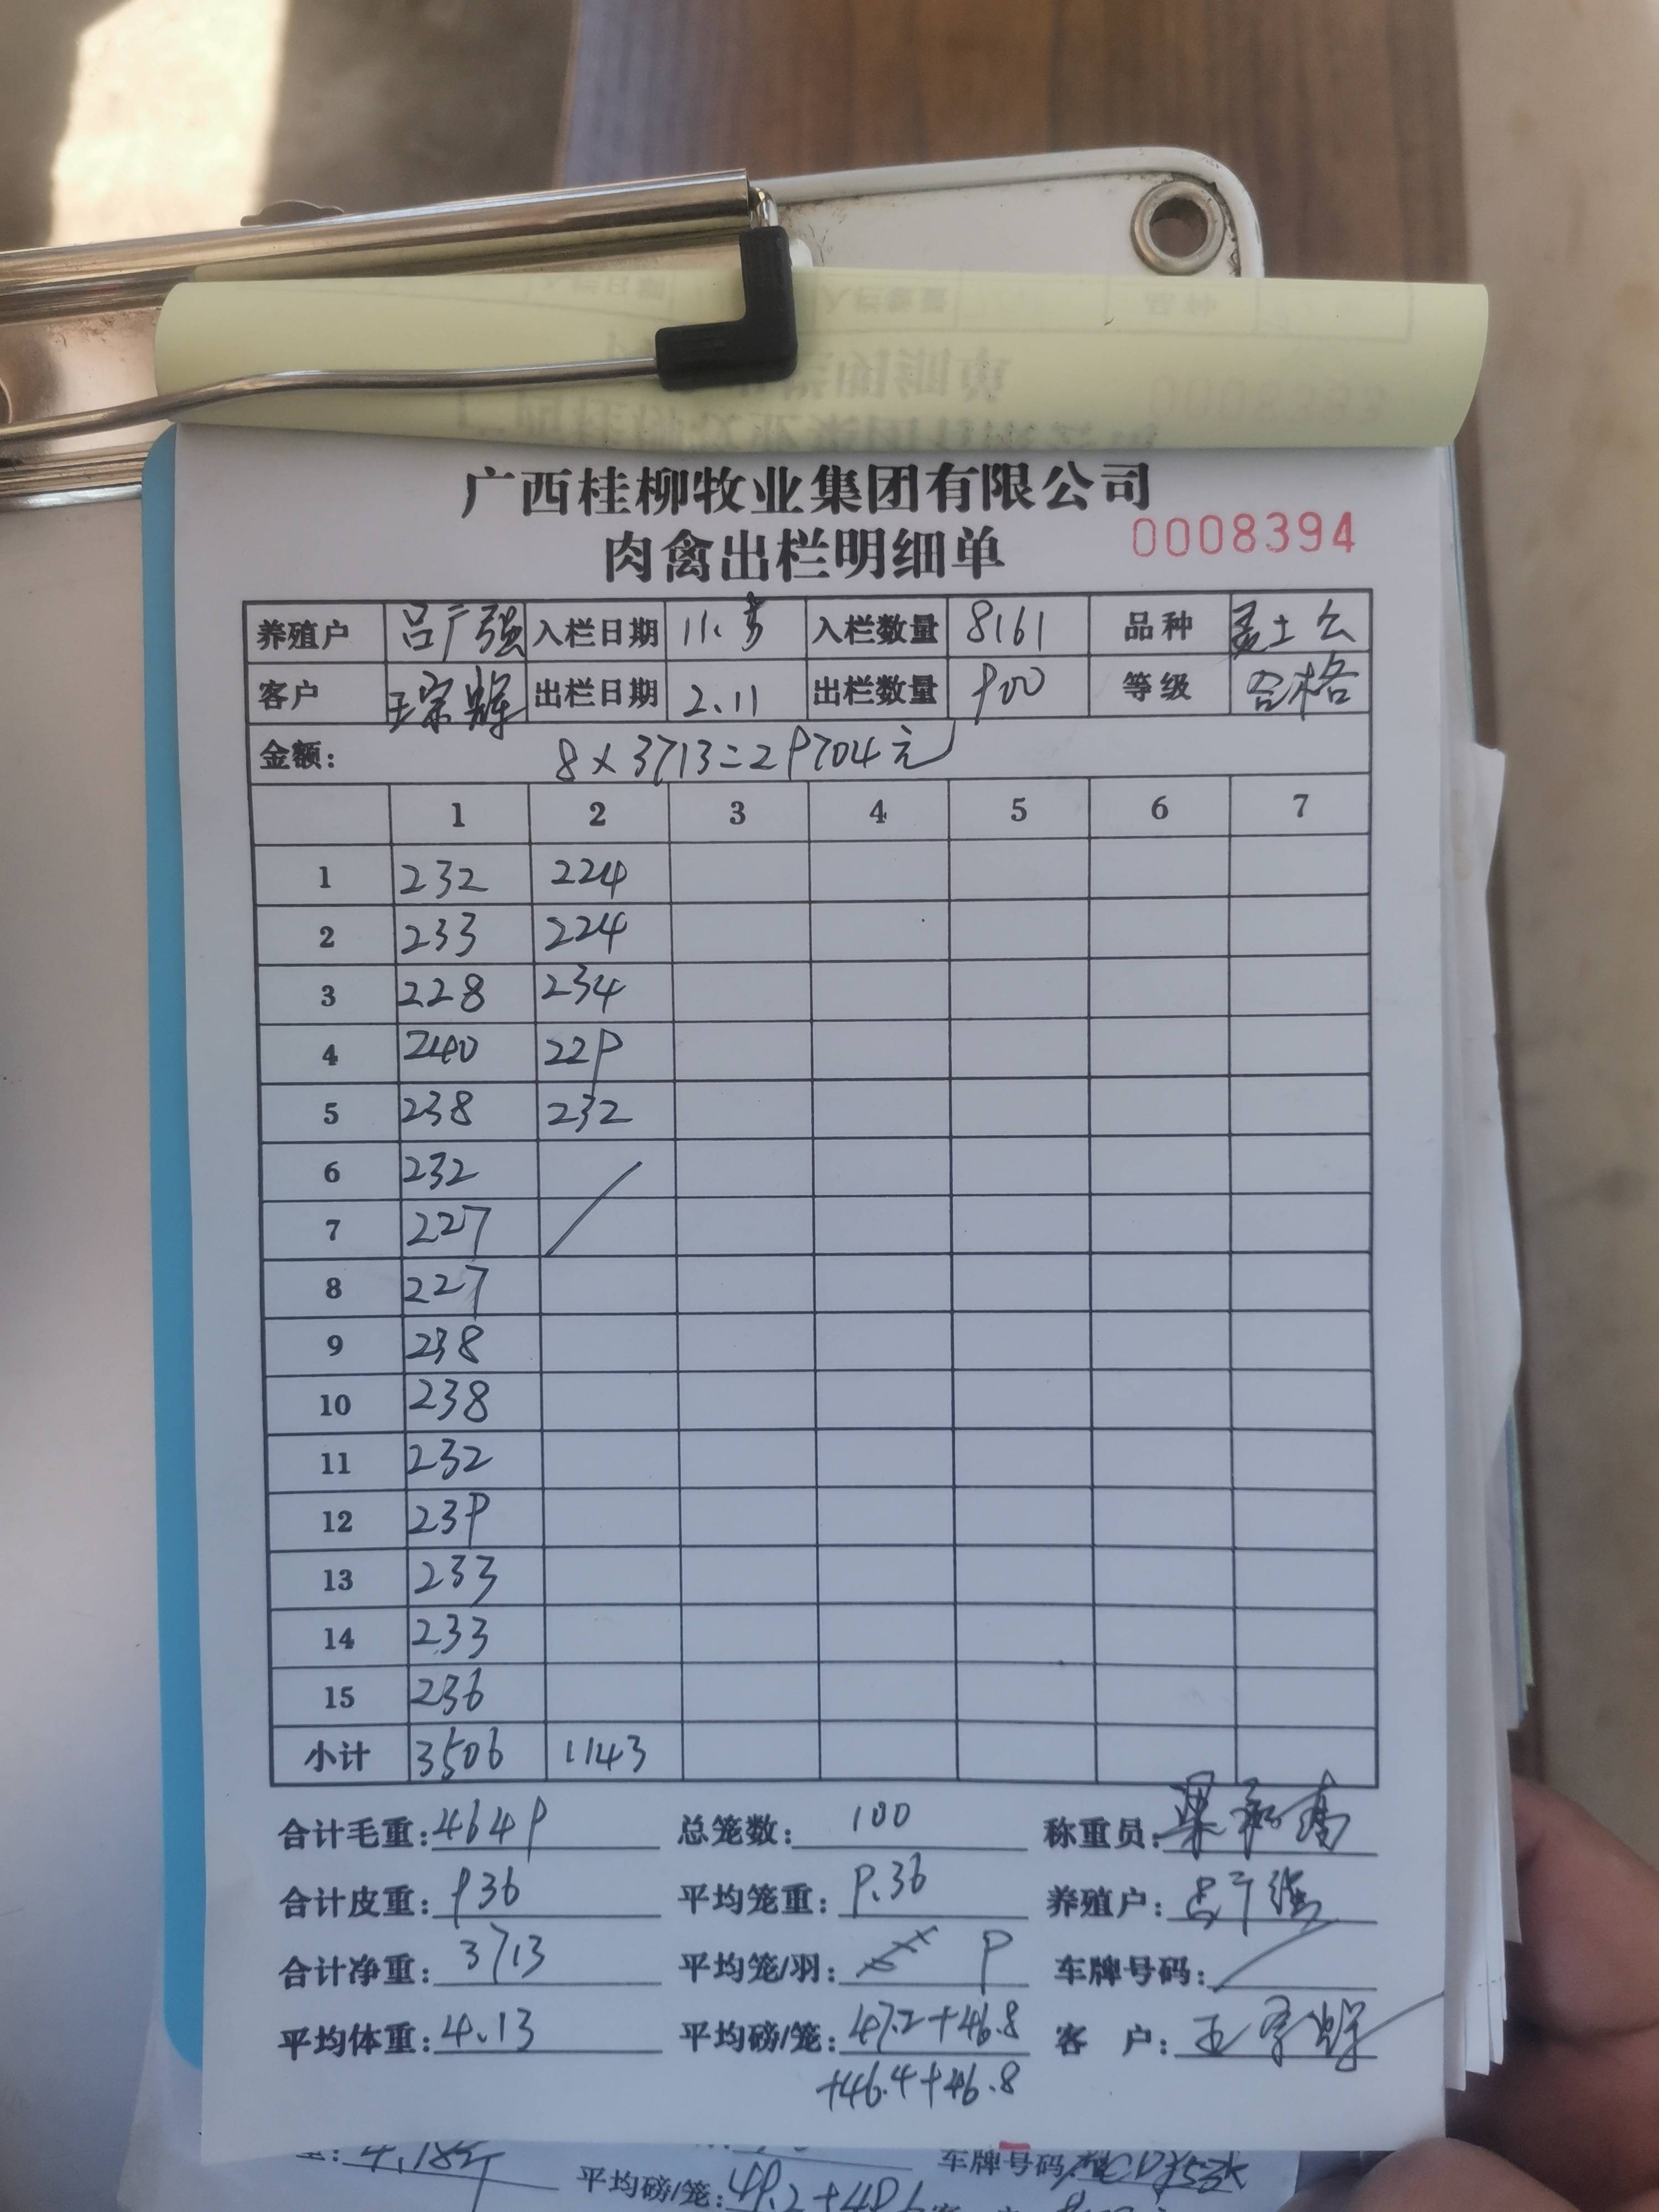 广西桂柳牧业集团有限公司
肉禽出栏明细单 0008394
养殖户 吕广强 入栏日期 11. 入栏数量 8161 品种 土公
客户 王宗辉 出栏日期 2.11 出栏数量 900 等级 合格
金额: 8×3713=29704元
1 2 3 4 5 6 7
1 232 224
2 233 224
3 228 234
4 240 229
5 238 232
6 232
7 227
8 227
9 238
10 238
11 232
12 239
13 233
14 233
15 236
小计 3506 1143
合计毛重:4649 总笼数: 100 称重员:
合计皮重:936 平均笼重:9.36 养殖户:吕广强
合计净重:3713 平均笼/羽: 9 车牌号码:
平均体重:4.13 平均磅/笼:47.2+46.8 客 户:王宗辉
+46.4+46.8
4.18斤 车牌号码
平均磅/笼:49.2+48.6